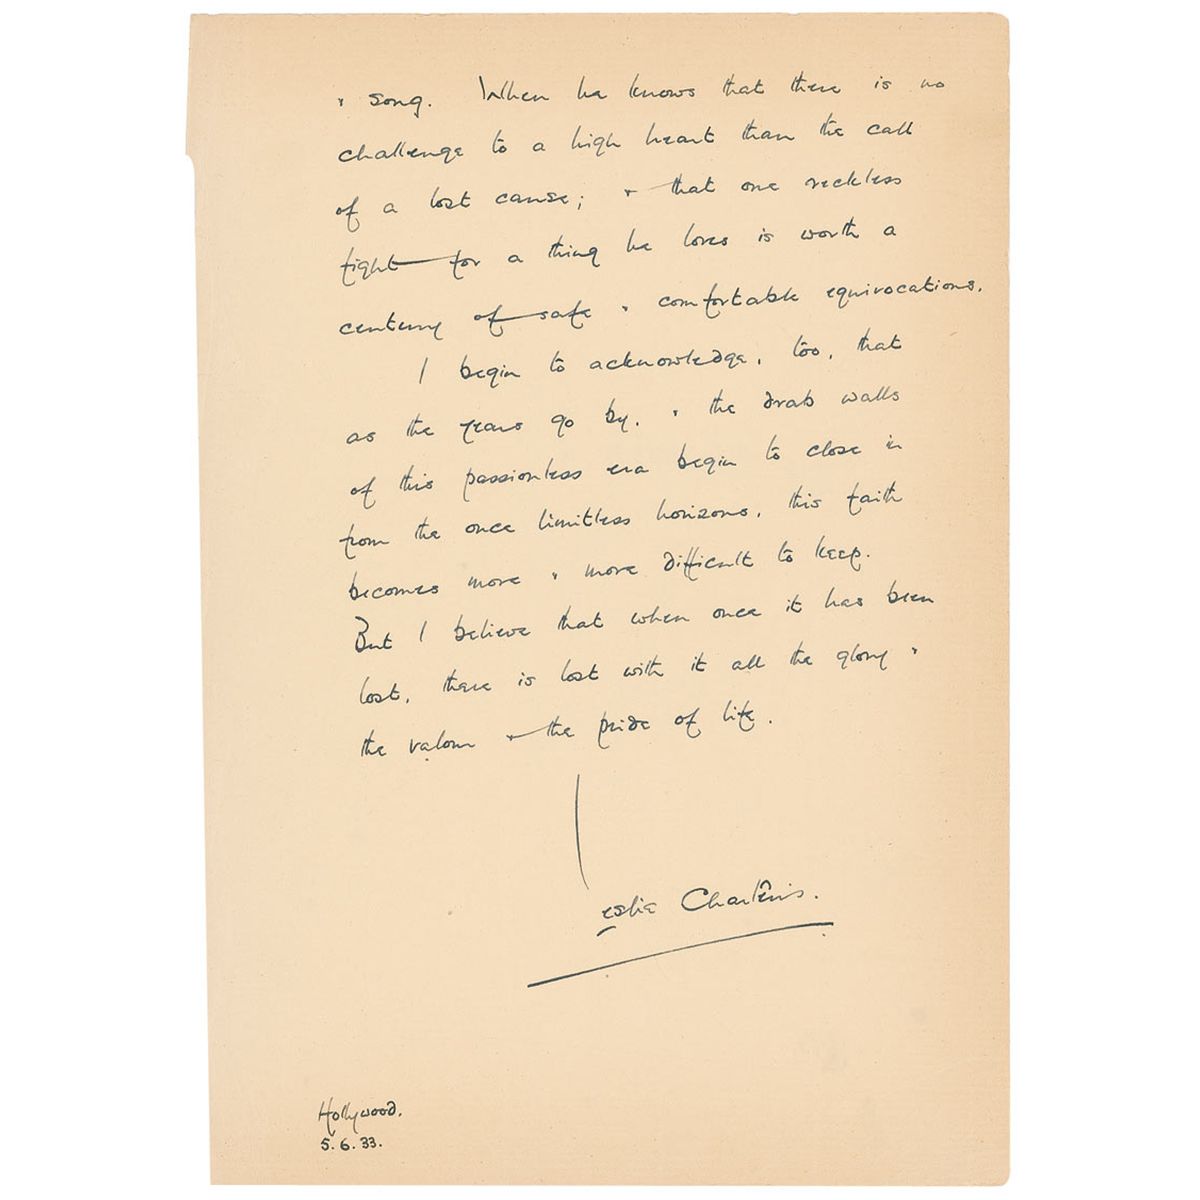 + song. When he knows that there is no
challenge to a high heart than the call
of a lost cause; + that one reckless
fight for a thing he loves is worth a
century of safe + comfortable equivocations.
I begin to acknowledge, too, that
as the years go by, + the drab walls
of this passionless era begin to close in
from the once limitless horizons, this faith
becomes more + more difficult to keep.
But I believe that when once it has been
lost, there is lost with it all the glory +
the valour + the pride of life.
Leslie Charteris.
Hollywood.
5.6.33.